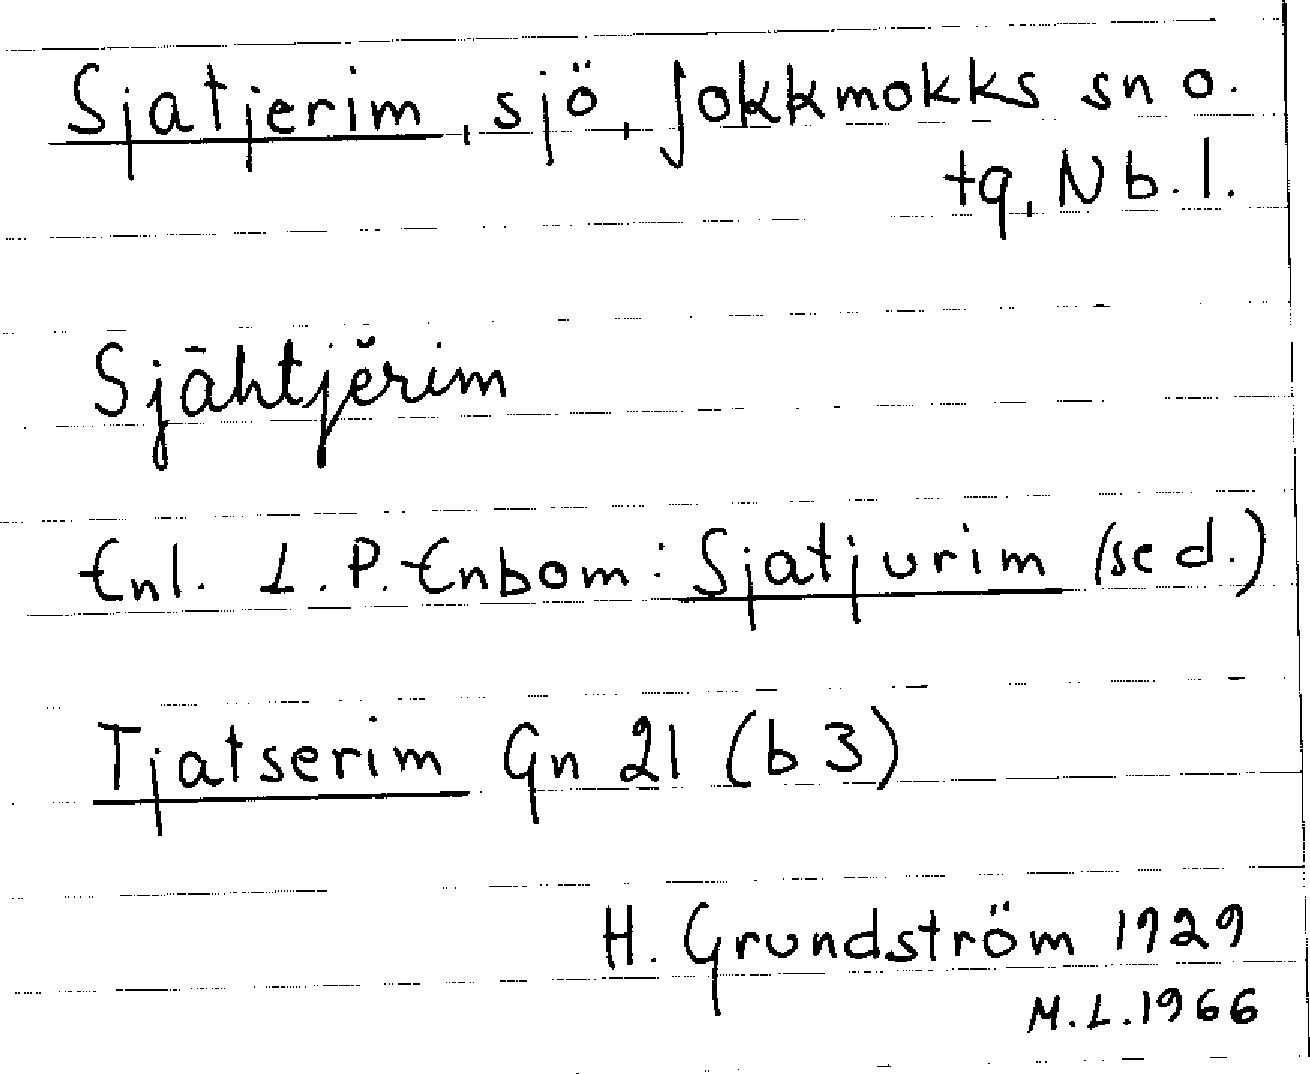 Sjatjerim, sjö, Jokkmokks sn o.
tg, Nb. l.
Sjāhtjĕrim
Enl. L. P. Enbom: Sjatjurim (se d.)
Tjatserim Gn 21 (b 3)
H. Grundström 1929
M. L. 1966